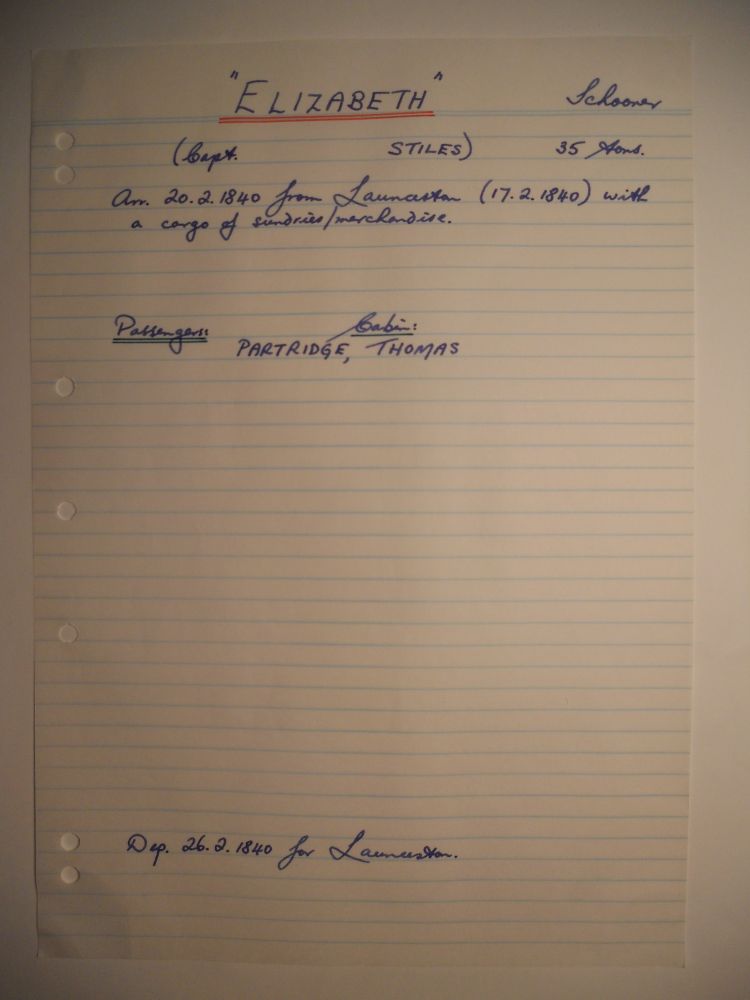 "ELIZABETH" Schooner
(Capt. STILES) 35 tons.
Arr. 20.2.1840 from Launceston (17.2.1840) with
a cargo of sundries/merchandise.
Passengers: Cabin:
PARTRIDGE, THOMAS
Dep. 26.2.1840 for Launceston.